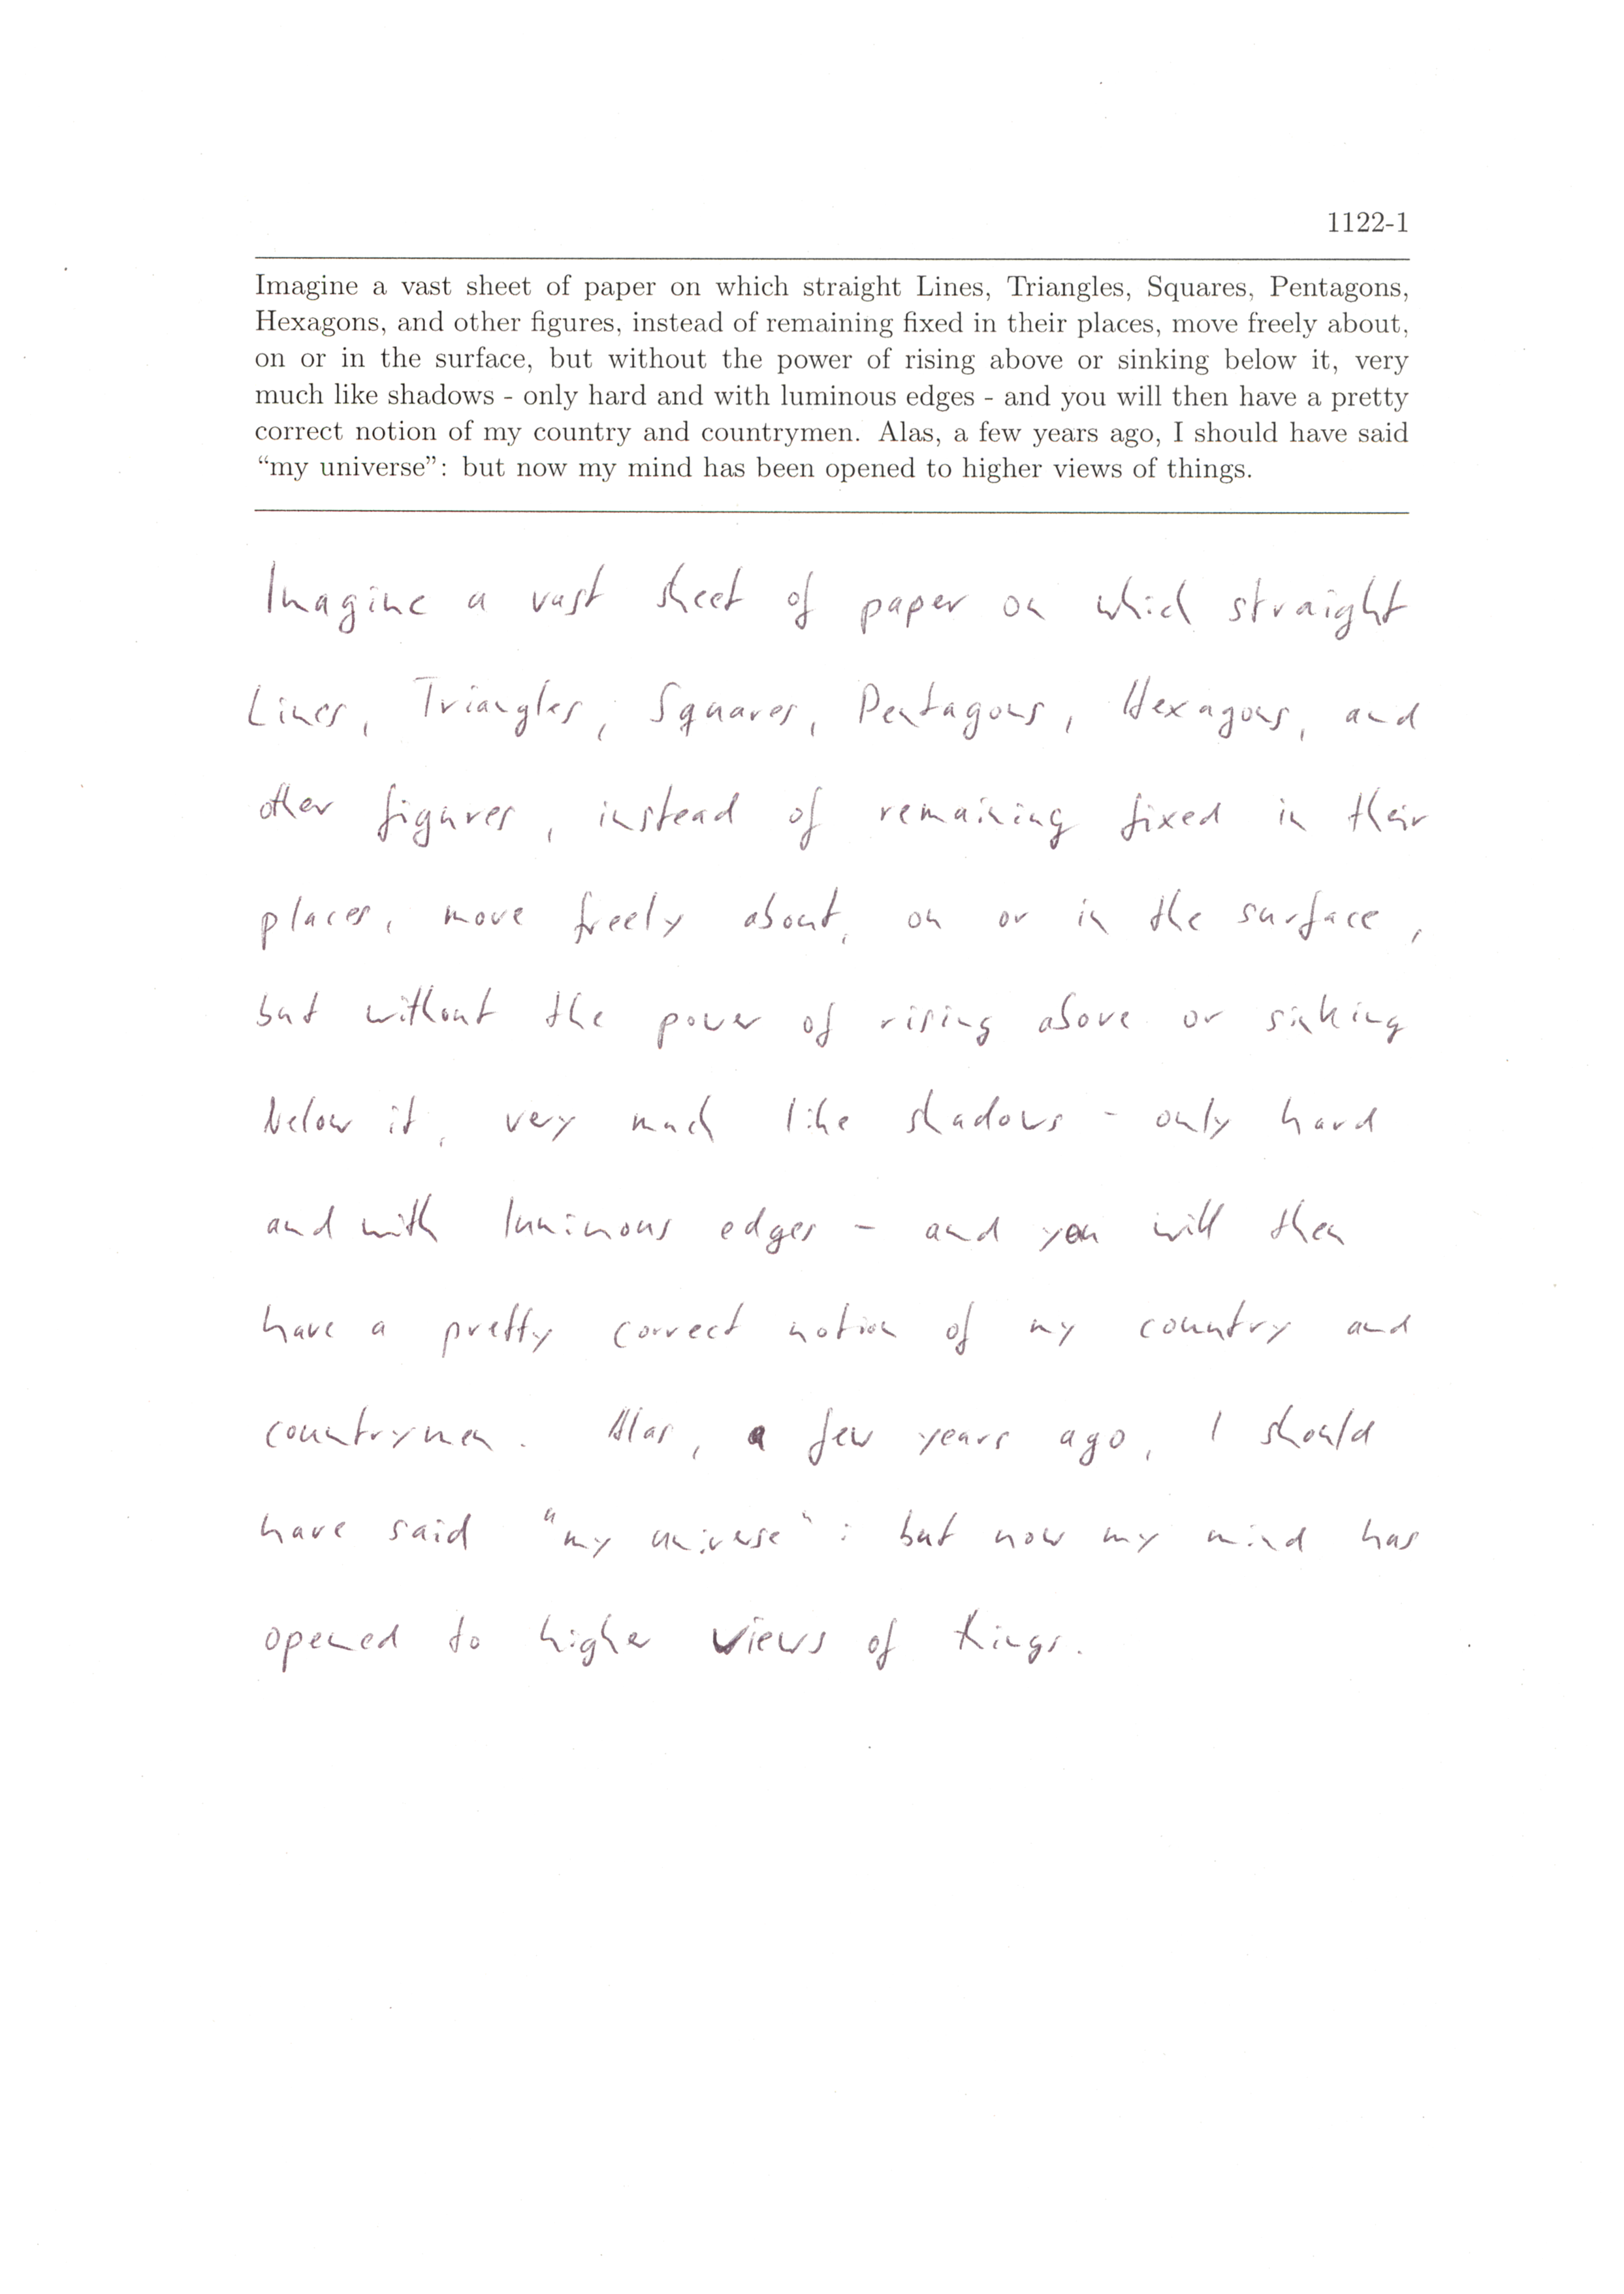 1122-1
Imagine a vast sheet of paper on which straight Lines, Triangles, Squares, Pentagons,
Hexagons, and other figures, instead of remaining fixed in their places, move freely about,
on or in the surface, but without the power of rising above or sinking below it, very
much like shadows - only hard and with luminous edges - and you will then have a pretty
correct notion of my country and countrymen. Alas, a few years ago, I should have said
“my universe”: but now my mind has been opened to higher views of things.
Imagine a vast sheet of paper on which straight
Lines, Triangles, Squares, Pentagons, Hexagons, and
other figures, instead of remaining fixed in their
places, move freely about, on or in the surface,
but without the power of rising above or sinking
below it, very much like shadows - only hard
and with luminous edges - and you will then
have a pretty correct notion of my country and
countrymen. Alas, a few years ago, I should
have said "my universe": but now my mind has
opened to higher views of things.